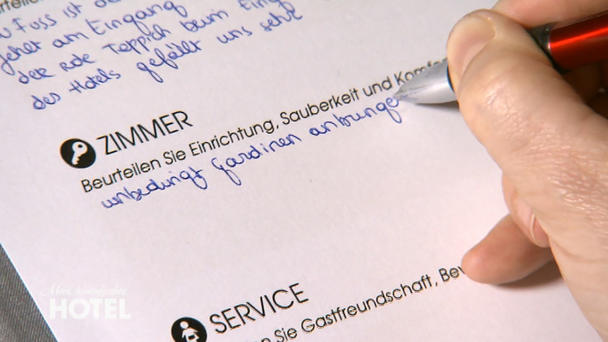 Fuss ist
am Eingang
der rote Teppich beim Ein
des Hotels gefällt uns sehr
ZIMMER
Beurteilen Sie Einrichtung, Sauberkeit und Komfo
unbedingt Gardinen anbringe
SERVICE
n Sie Gastfreundschaft, Bew
HOTEL